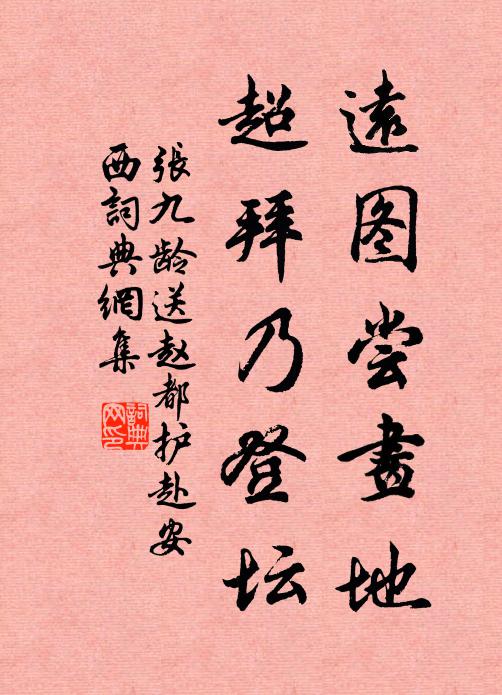 遠图尝畫地
超拜乃登坛
張九龄送赵都护赴安
西詞典網集
詞典
网印